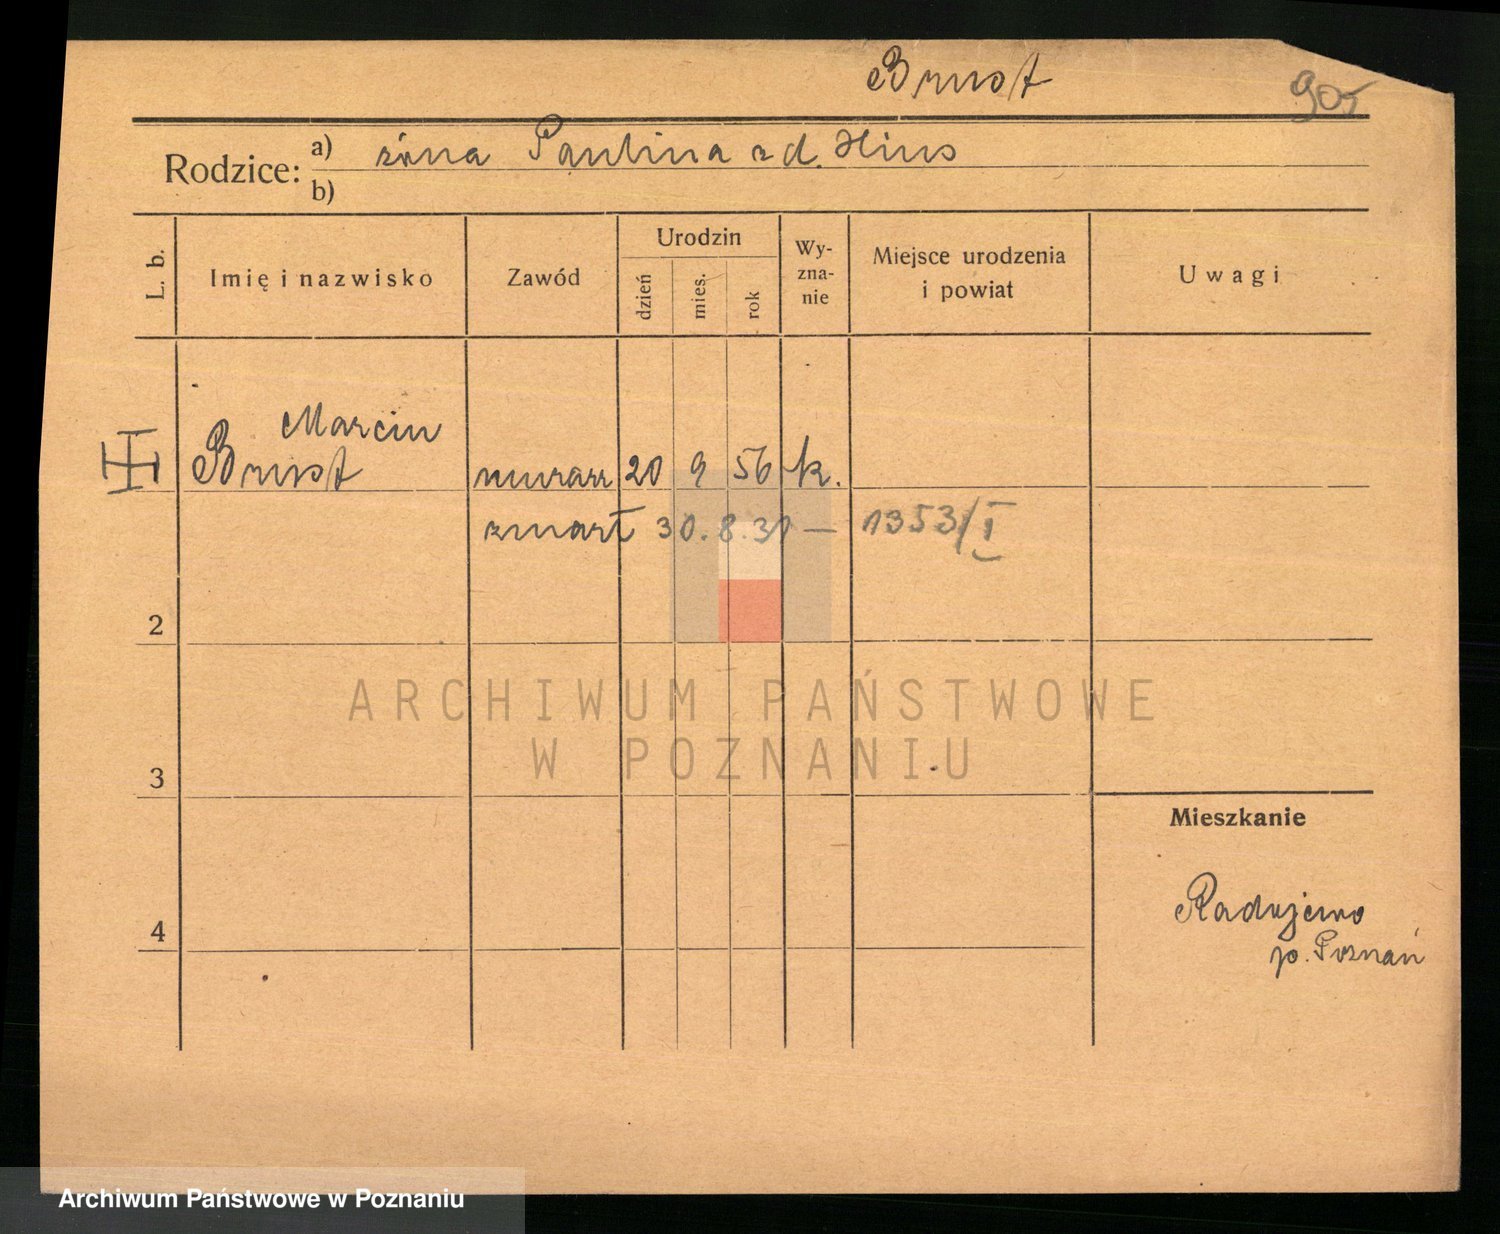 Brust
905
Rodzice: a) żona Paulina z d. Hins
b)
L. b.
Imię i nazwisko
Zawód
Urodzin
dzień
mies.
rok
Wy-
zna-
nie
Miejsce urodzenia
i powiat
Uwagi
Marcin
Brust murarz 20 9 56 k.
zmarł 30.8.31 — 1353/I
2
3
4
Mieszkanie
Radojewo
p. Poznań
ARCHIWUM PAŃSTWOWE
W POZNANIU
Archiwum Państwowe w Poznaniu